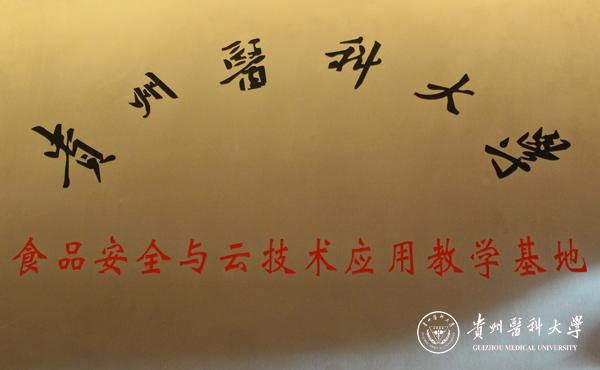 貴州醫科大學
食品安全与云技术应用教学基地
貴州醫科大學
GUIZHOU MEDICAL UNIVERSITY